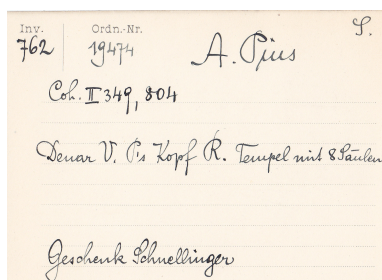 Inv. Ordn.-Nr. S.
762 19474 A. Pius
Coh. II 349, 804
Denar V. P's Kopf R. Tempel mit 8 Säulen
Geschenk Schnellinger